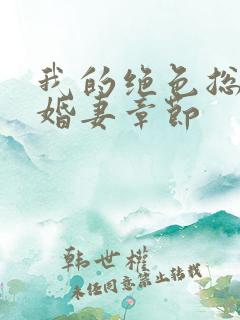 我的绝色总
婚妻章节
韩世权
未经同意禁止转载